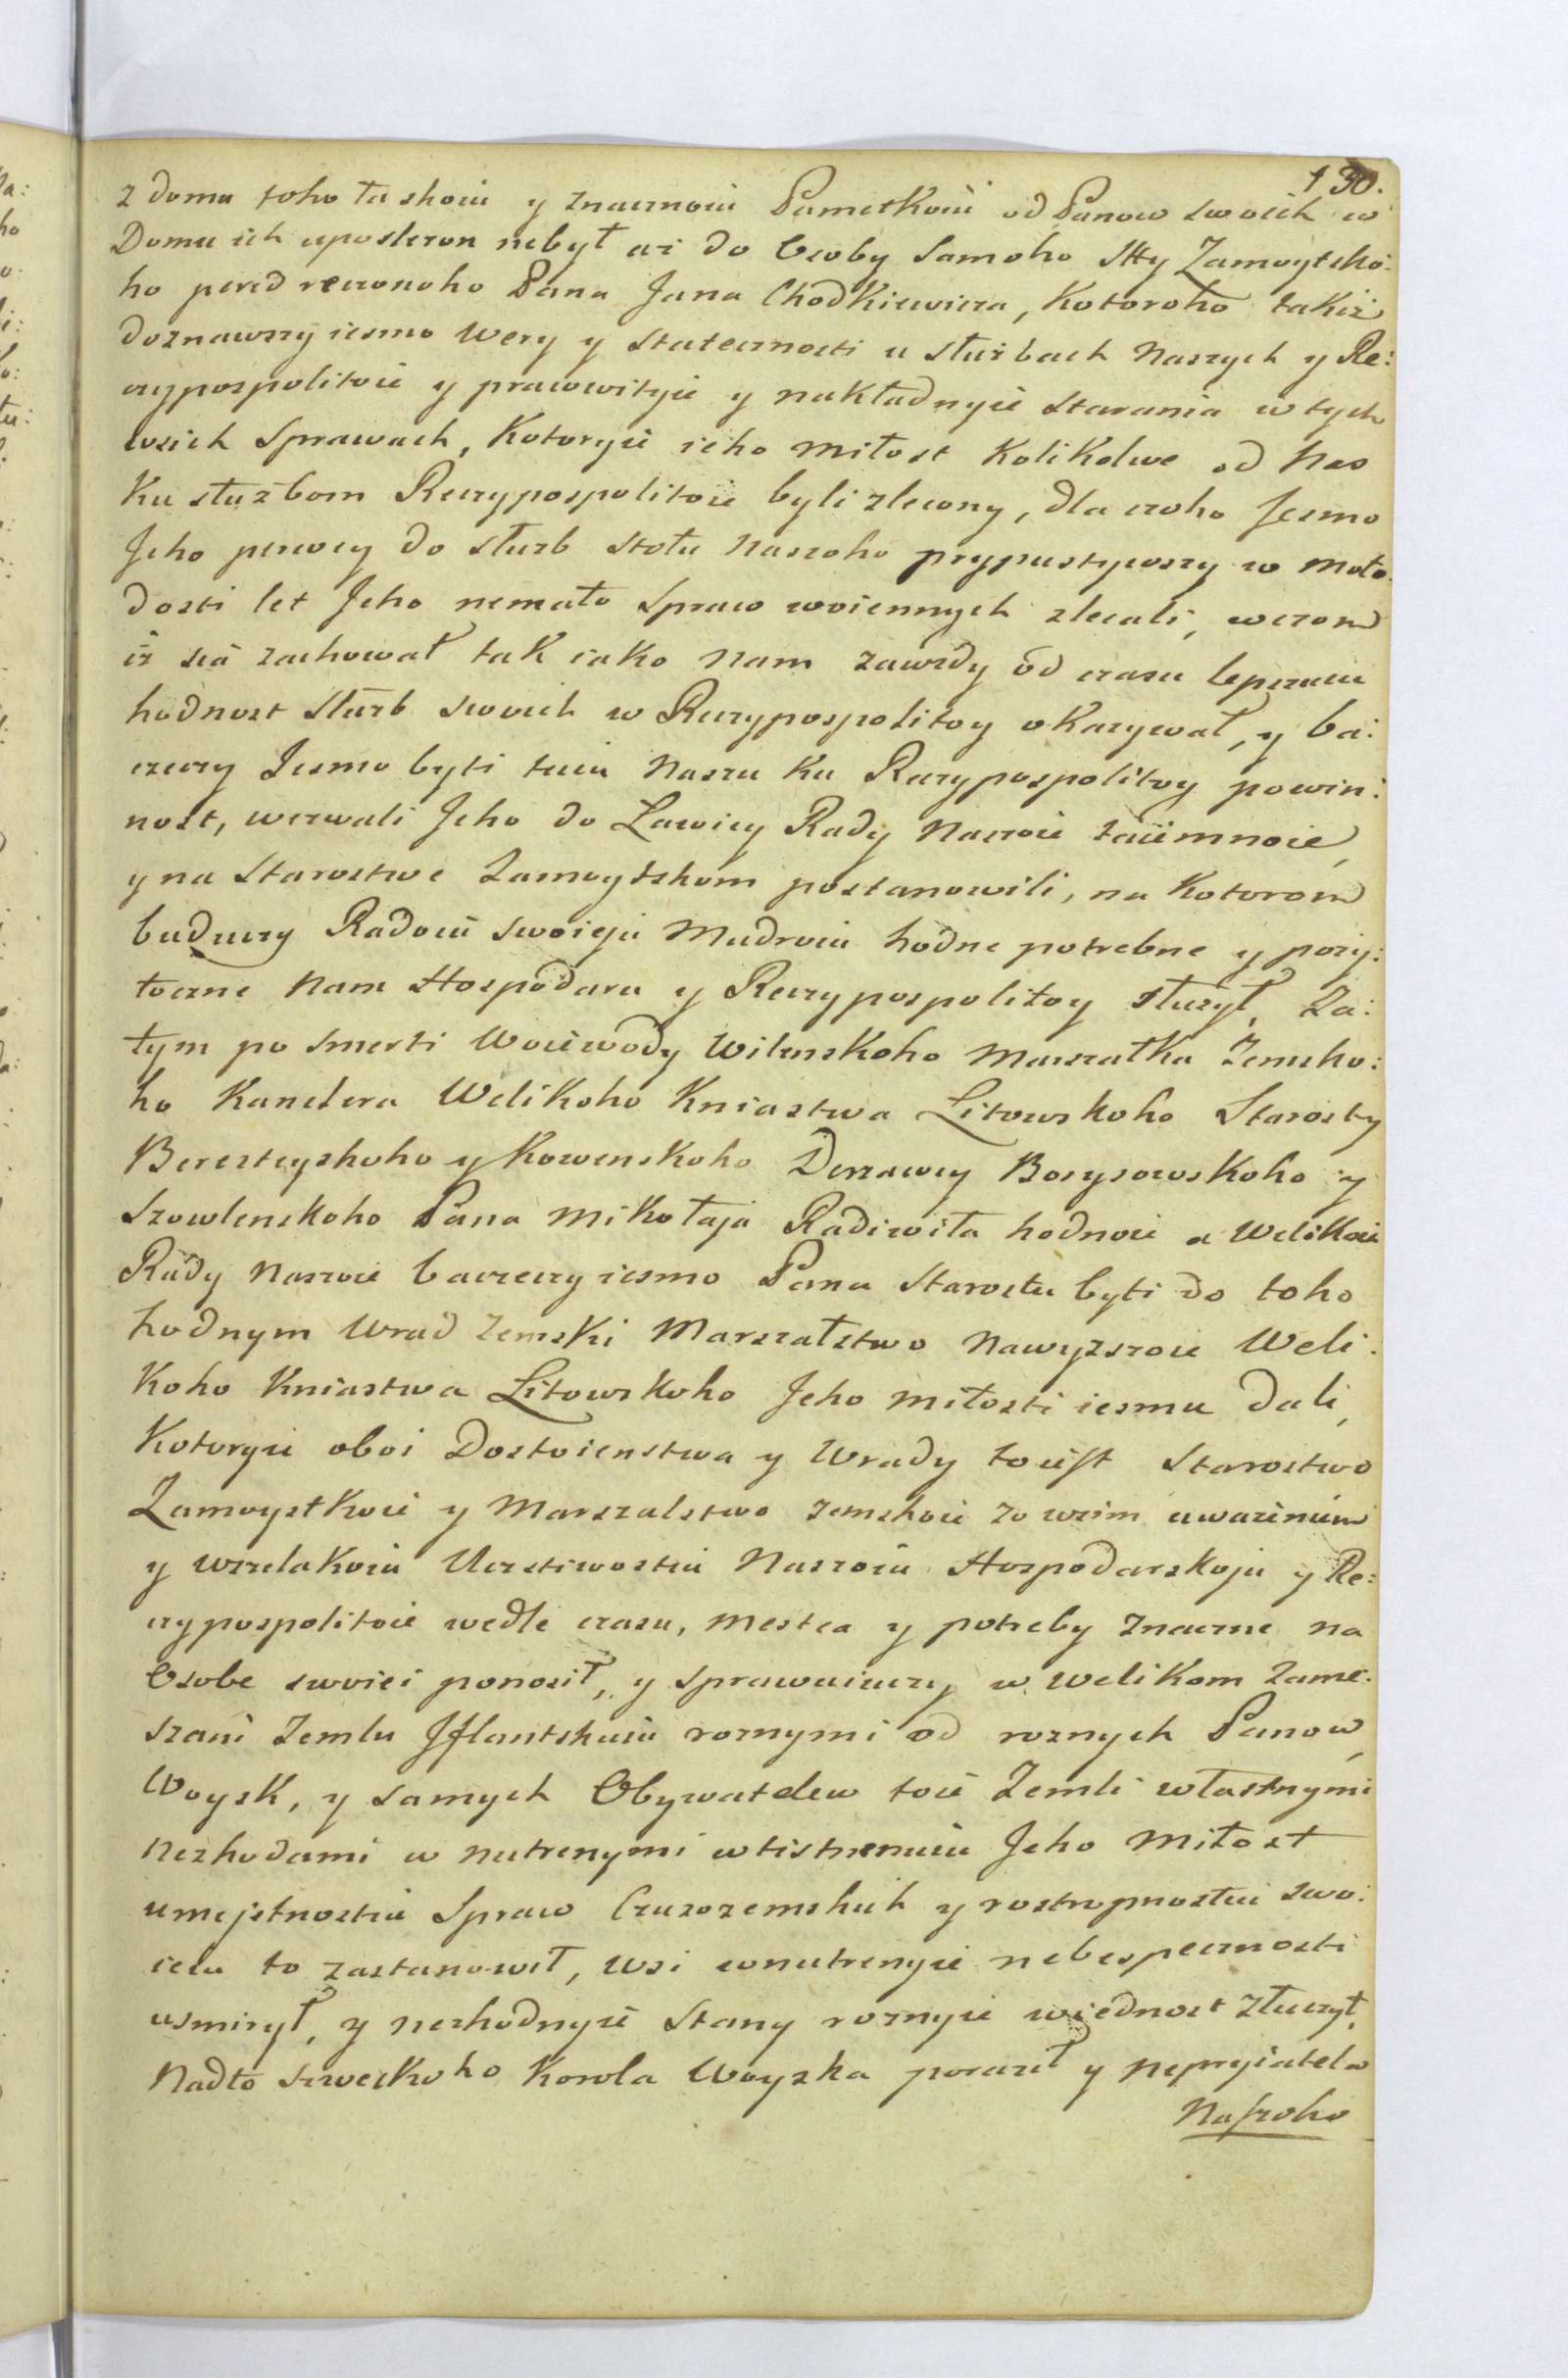 130.
z domu toho łaskoiu y znacznoiu Pametkoiu od Panow swoich w
Domu ich uposleron nebył aż do Osoby samoho Stty Zamoytsko:
ho pered reczonoho Pana Jana Chodkiewicza, Kotoroho takiż
doznawszy iesmo Wery y Statecznosti u służbach Naszych y Re:
czypospolitoie y pracowityie y nakładnyie starania w tych
wsich Sprawach, Kotoryie ieho miłost Kolikolwe od Nas
Ku służbom Reczypospolitoie byli zlecony, dla czoho Jesmo
Jeho perwey do służb stołu Naszoho prypustywszy w moło:
dosti let Jeho nemało Spraw woiennych zlecali, wczom
iż sia zachował tak iako Nam zawzdy od czasu lepszuiu
hodnost Służb swoich w Reczypospolitoy okazywał, y ba:
czuczy Jesmo byti tuiu Naszu Ku Reczypospolitoy powin:
nost, wezwali Jeho do Ławicy Rady Naszoie taiemnoie,
y na Starostwe Zamoytskom postanowili, na Kotorom
buduczy Radoiu swoieju Mudroiu hodne potrebne y pozy:
toczne Nam Hospodaru y Reczypospolitoy służył, Za:
tym po smerti Woiewody Wilenskoho Marszałka Zemsko:
ho Kanclera Welikoho Kniastwa Litowskoho Starosty
Beresteyskoho y Kowenskoho Derzawcy Borysowskoho y
Szowlenskoho Pana Mikołaja Radiwiła hodnoie a Welikoie
Rady Naszoie baczeczy iesmo Pana Starostu byti do toho
hodnym Wrad Zemski Marszałstwo Nawyzszoie Weli:
Koho Kniastwa Litowskoho Jeho miłosti iesmu dali,
Kotoryie oboi Dostoienstwa y Wrady toiest Starostwo
Zamoystkoie y Marszalstwo zemskoie zo wsim uważeniem
y wszelakoiu Uczstiwostiu Naszoiu Hospodarskoju y Re:
czypospolitoie wedle czasu, mestca y potreby znaczne na
Osobe swoiei ponosił, y sprawuiuczy w Welikom Zame:
szani Zemlu Jflantskuiu roznymi od roznych Panow,
Woysk, y samych Obywatelew toie Zemli własnymi
Nezhodami w nutrenymi wtisnenuiu Jeho Miłost
umejetnostiu Spraw Czuzozemskich y rostropnostiu swo:
ieiu to zastanowił, wsi wnutrenyie nebespecznosti
usmirył, y nezhodnyie Stany roznyie wiednost złuczył,
Nadto szweckoho Korola Woyska poraził y nepryiatela
Naszoho